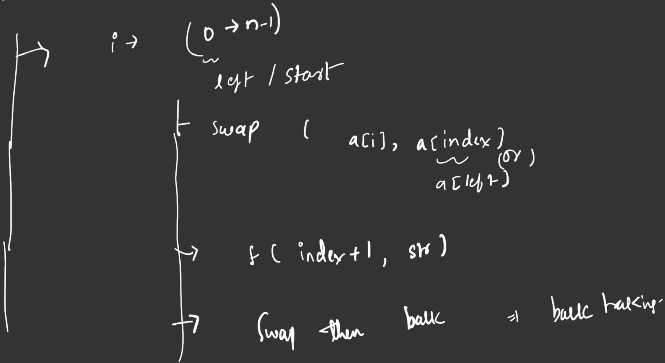 i → (0 → n-1)
left / start
swap ( a[i], a[index]
(or)
a[left]
f( index+1, str)
Swap then back ⇒ back tracking.